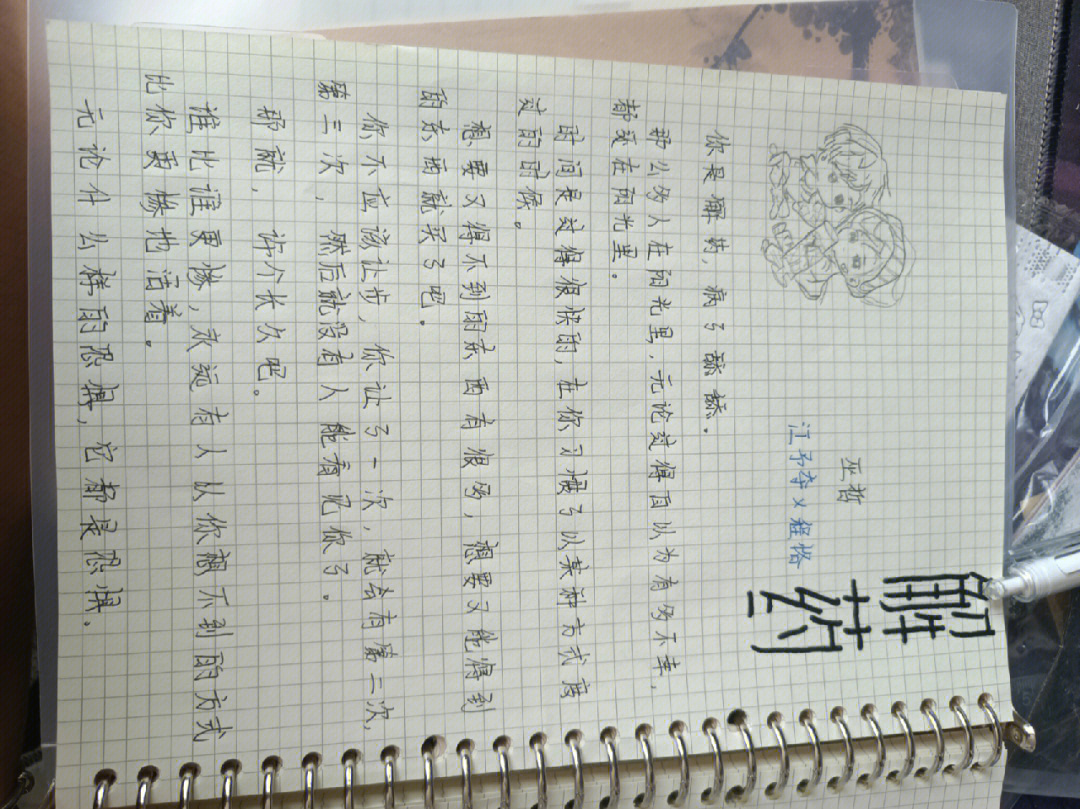 解药
巫哲
江予夺×程恪
你是解药，病了舔舔．
那么多人在阳光里，无论过得自以为有多不幸，
都是在阳光里。
时间是过得很快的，在你习惯了以某种方式度
过的时候。
想要又得不到的东西有很多，想要又能得到
的东西就买了吧。
你不应该让步，你让了一次，就会有第二次，
第三次，然后就没有人能看见你了。
那就，许个长久吧。
谁比谁更惨，永远有人以你想不到的方式
比你更惨地活着。
无论什么样的恐惧，它都是恐惧．